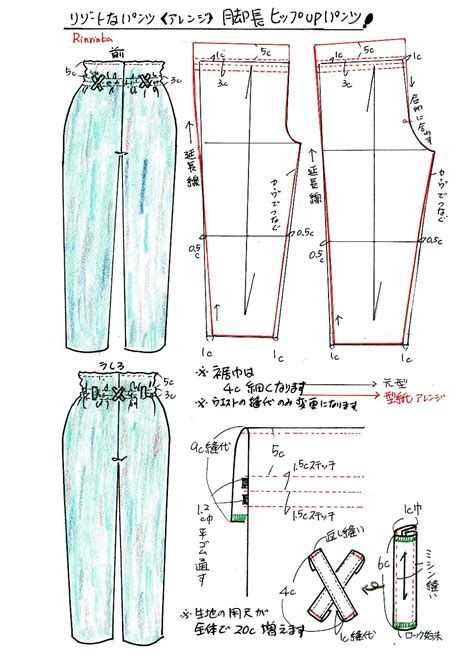 リゾートなパンツ《アレンジ》 脚長ヒップupパンツ
Rinrinka
前
5c
3c
1c
5c
3c
延長線
カーブでつなぐ
0.5c
0.5c
1c
1c
1c
5c
1c
3c
合わせ
延長線
カーブでつなぐ
0.5c
0.5c
1c
1c
うしろ
5c
3c
※裾巾は
4c細くなります
※ウエストの縫代のみ変更になります
元型
型紙アレンジ
9c縫代
5c
1.5cステッチ
1.5cステッチ
1.2c巾平ゴム通す
返し縫い
4c
1c縫代
1c巾
6c
ミシン縫い
ロック始末
※生地の用尺が
全体で20c増えます